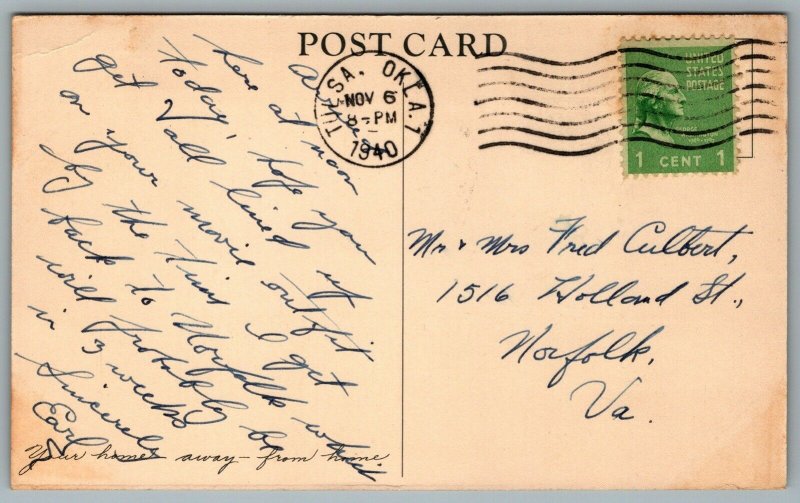 POST CARD
TULSA, OKLA. 1
NOV 6
8-PM
1940
UNITED
STATES
POSTAGE
1 CENT 1
Arrived
here at noon
today, hope you
get all lined up
on your movie outfit
by the time I get
back to Norfolk which
will probably be
in 3 weeks
Sincerely
Earl
Your home away-from home
Mr & Mrs Fred Culbert,
1516 Holland St.,
Norfolk,
Va.